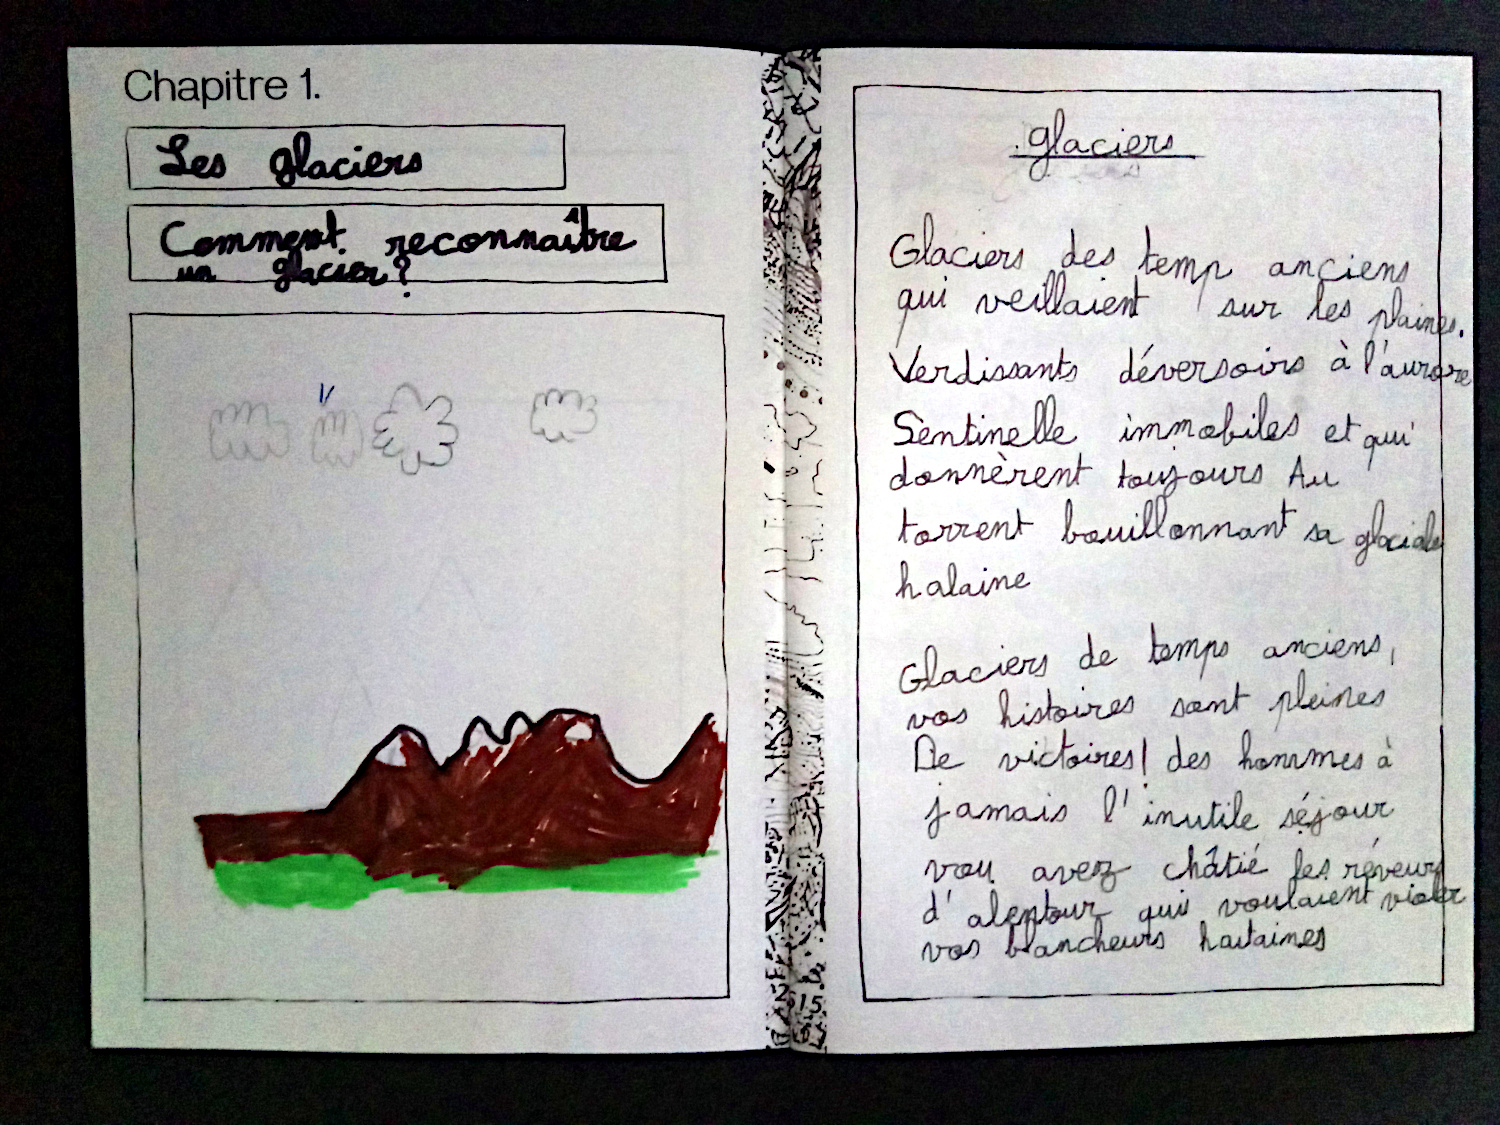 Chapitre 1.
Les glaciers
Comment reconnaître
un glacier ?
glaciers
Glaciers des temp anciens
qui veillaient sur les plaines.
Verdissants déversoirs à l'aurore
Sentinelle immobiles et qui
donnèrent toujours Au
torrent bouillonnant sa glaciale
halaine
Glaciers de temps anciens,
vos histoires sont pleines
De victoires! des hommes à
jamais l'inutile séjour
vou avez châtié les rêveurs
d'alentour qui voulaient violer
vos blancheurs hautaines